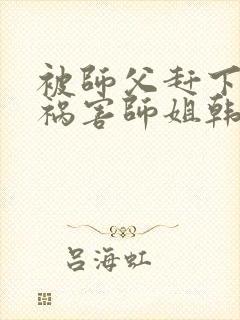 被師父赶下
祸害師姐韩
吕海虹